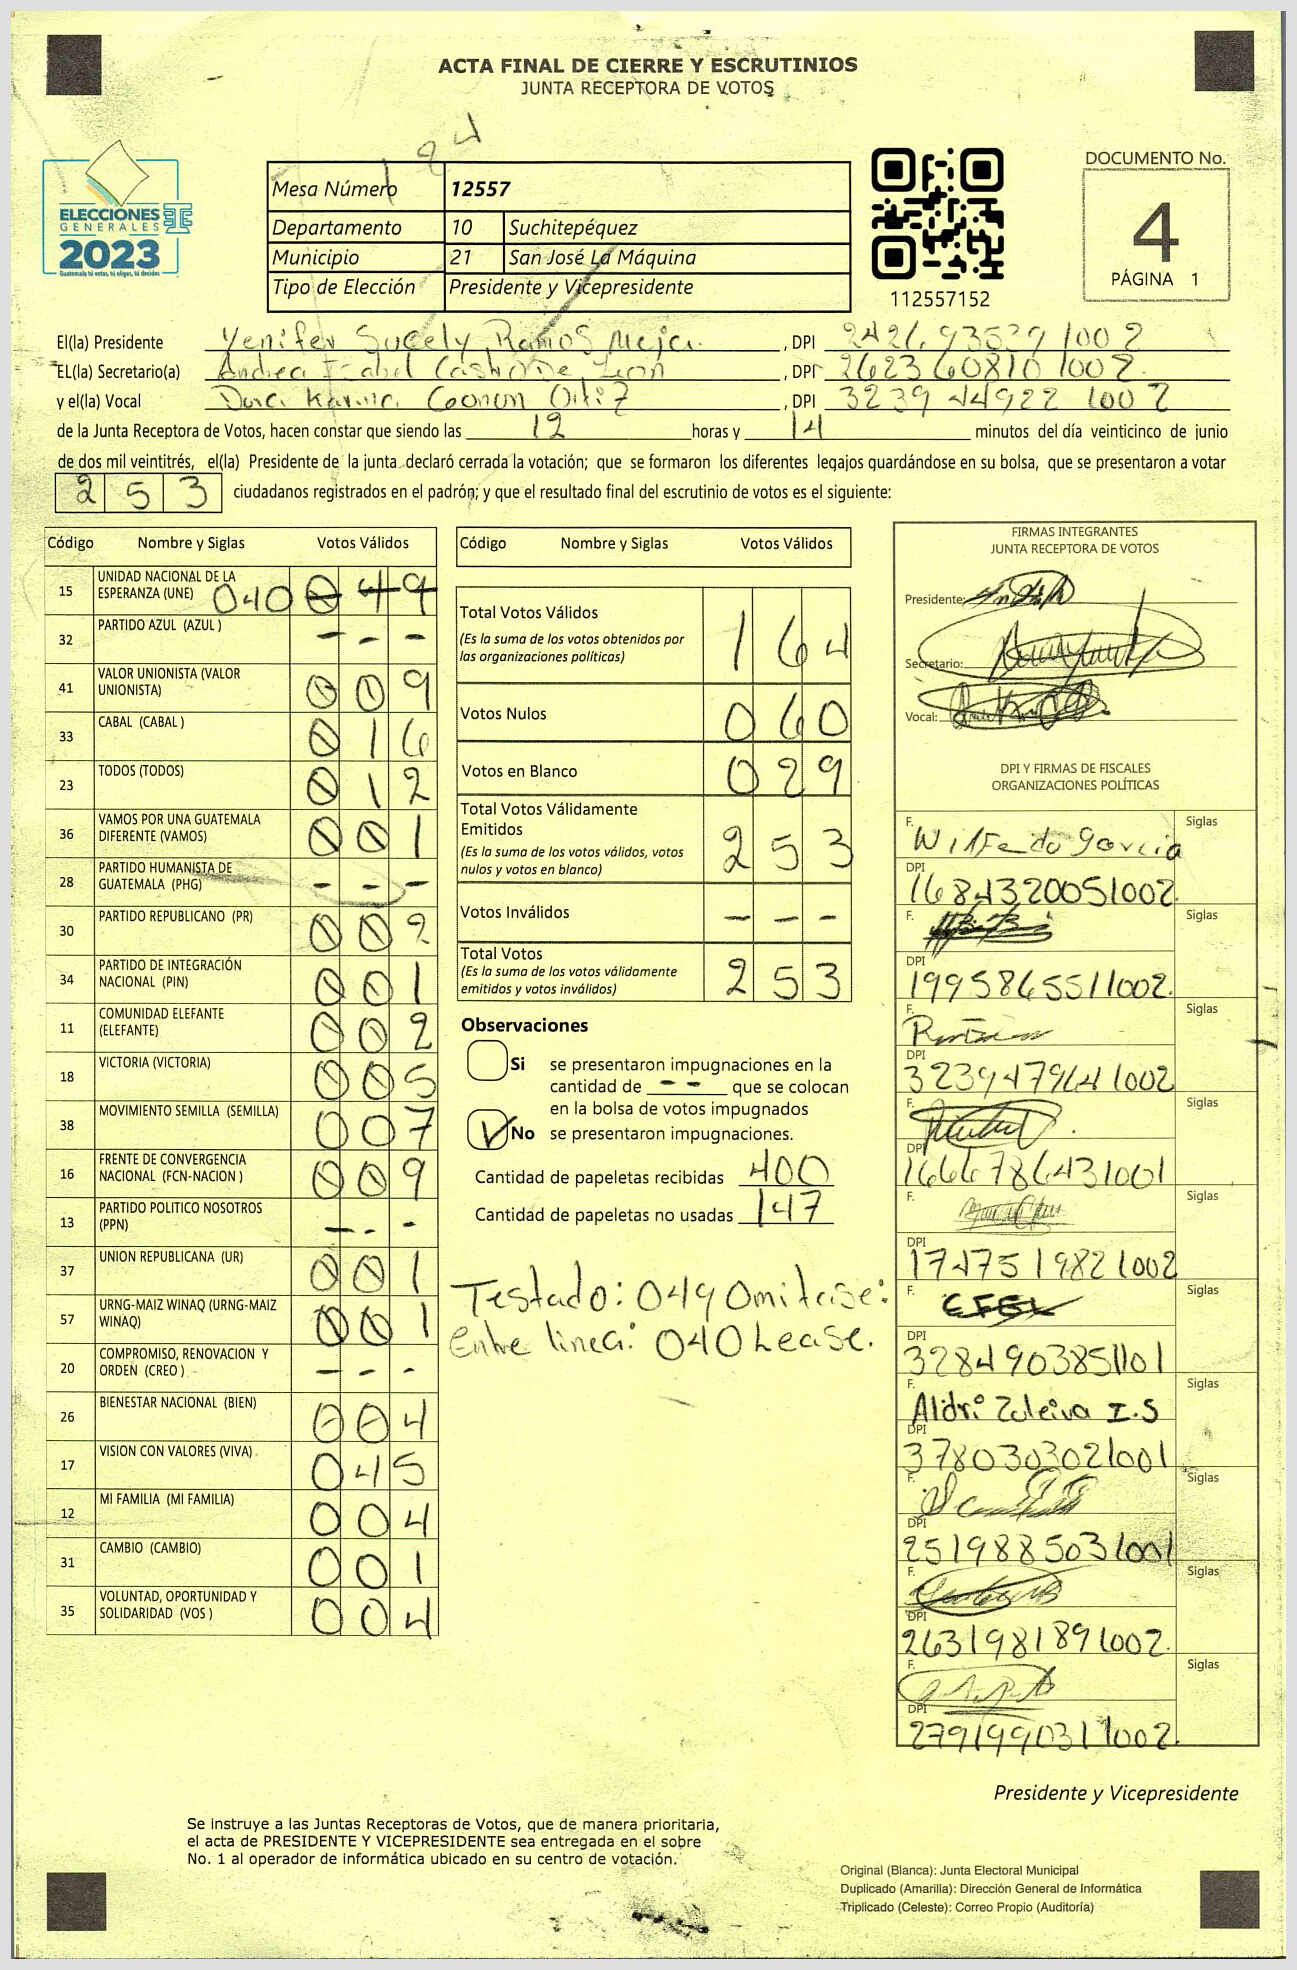 ACTA FINAL DE CIERRE Y ESCRUTINIOS
JUNTA RECEPTORA DE VOTOS
ELECCIONES
GENERALES
2023
Guatemala tú votas, tú eliges, tú decides
Mesa Número 12557
Departamento 10 Suchitepéquez
Municipio 21 San José La Máquina
Tipo de Elección Presidente y Vicepresidente
112557152
DOCUMENTO No.
4
PÁGINA 1
El(la) Presidente Yenifer Sucely Ramos Mejia. , DPI 2421693539 1002
EL(la) Secretario(a) Andrea Isabel Castro De Leon , DPI 2623608101002.
y el(la) Vocal Dora Karina Coonon Ortiz , DPI 3239449221002
de la Junta Receptora de Votos, hacen constar que siendo las 12 horas y 14 minutos del día veinticinco de junio
de dos mil veintitrés, el(la) Presidente de la junta declaró cerrada la votación; que se formaron los diferentes legajos guardándose en su bolsa, que se presentaron a votar
253 ciudadanos registrados en el padrón; y que el resultado final del escrutinio de votos es el siguiente:
Código Nombre y Siglas Votos Válidos
15 UNIDAD NACIONAL DE LA ESPERANZA (UNE) 040 049
32 PARTIDO AZUL (AZUL ) - - -
41 VALOR UNIONISTA (VALOR UNIONISTA) 009
33 CABAL (CABAL ) 016
23 TODOS (TODOS) 012
36 VAMOS POR UNA GUATEMALA DIFERENTE (VAMOS) 001
28 PARTIDO HUMANISTA DE GUATEMALA (PHG) - - -
30 PARTIDO REPUBLICANO (PR) 002
34 PARTIDO DE INTEGRACIÓN NACIONAL (PIN) 001
11 COMUNIDAD ELEFANTE (ELEFANTE) 002
18 VICTORIA (VICTORIA) 005
38 MOVIMIENTO SEMILLA (SEMILLA) 007
16 FRENTE DE CONVERGENCIA NACIONAL (FCN-NACION ) 009
13 PARTIDO POLITICO NOSOTROS (PPN) - - -
37 UNION REPUBLICANA (UR) 001
57 URNG-MAIZ WINAQ (URNG-MAIZ WINAQ) 001
20 COMPROMISO, RENOVACION Y ORDEN (CREO ) - - -
26 BIENESTAR NACIONAL (BIEN) 004
17 VISION CON VALORES (VIVA) 045
12 MI FAMILIA (MI FAMILIA) 004
31 CAMBIO (CAMBIO) 001
35 VOLUNTAD, OPORTUNIDAD Y SOLIDARIDAD (VOS ) 004
Código Nombre y Siglas Votos Válidos
Total Votos Válidos 164
(Es la suma de los votos obtenidos por
las organizaciones políticas)
Votos Nulos 060
Votos en Blanco 029
Total Votos Válidamente
Emitidos 253
(Es la suma de los votos válidos, votos
nulos y votos en blanco)
Votos Inválidos - - -
Total Votos 253
(Es la suma de los votos válidamente
emitidos y votos inválidos)
Observaciones
Si se presentaron impugnaciones en la
cantidad de - - que se colocan
en la bolsa de votos impugnados
No se presentaron impugnaciones.
Cantidad de papeletas recibidas 400
Cantidad de papeletas no usadas 147
Testado: 049 Omitase:
Entre linea: 040 Lease.
FIRMAS INTEGRANTES
JUNTA RECEPTORA DE VOTOS
Presidente:
Secretario:
Vocal:
DPI Y FIRMAS DE FISCALES
ORGANIZACIONES POLÍTICAS
F. Wilfredo Garcia Siglas
DPI 1684320051002.
F. Siglas
DPI 1995865511002.
F. Siglas
DPI 3239479641002
F. Siglas
DPI 1666786431001
F. Siglas
DPI 1747519821002
F. Siglas
DPI 3284903851101
F. Aldri Zuleiva I.S Siglas
DPI 3780303021001
F. Siglas
DPI 2519885031001
F. Siglas
DPI 2631981891002.
F. Siglas
DPI 2791990311002.
Presidente y Vicepresidente
Se instruye a las Juntas Receptoras de Votos, que de manera prioritaria,
el acta de PRESIDENTE Y VICEPRESIDENTE sea entregada en el sobre
No. 1 al operador de informática ubicado en su centro de votación.
Original (Blanca): Junta Electoral Municipal
Duplicado (Amarilla): Dirección General de Informática
Triplicado (Celeste): Correo Propio (Auditoría)